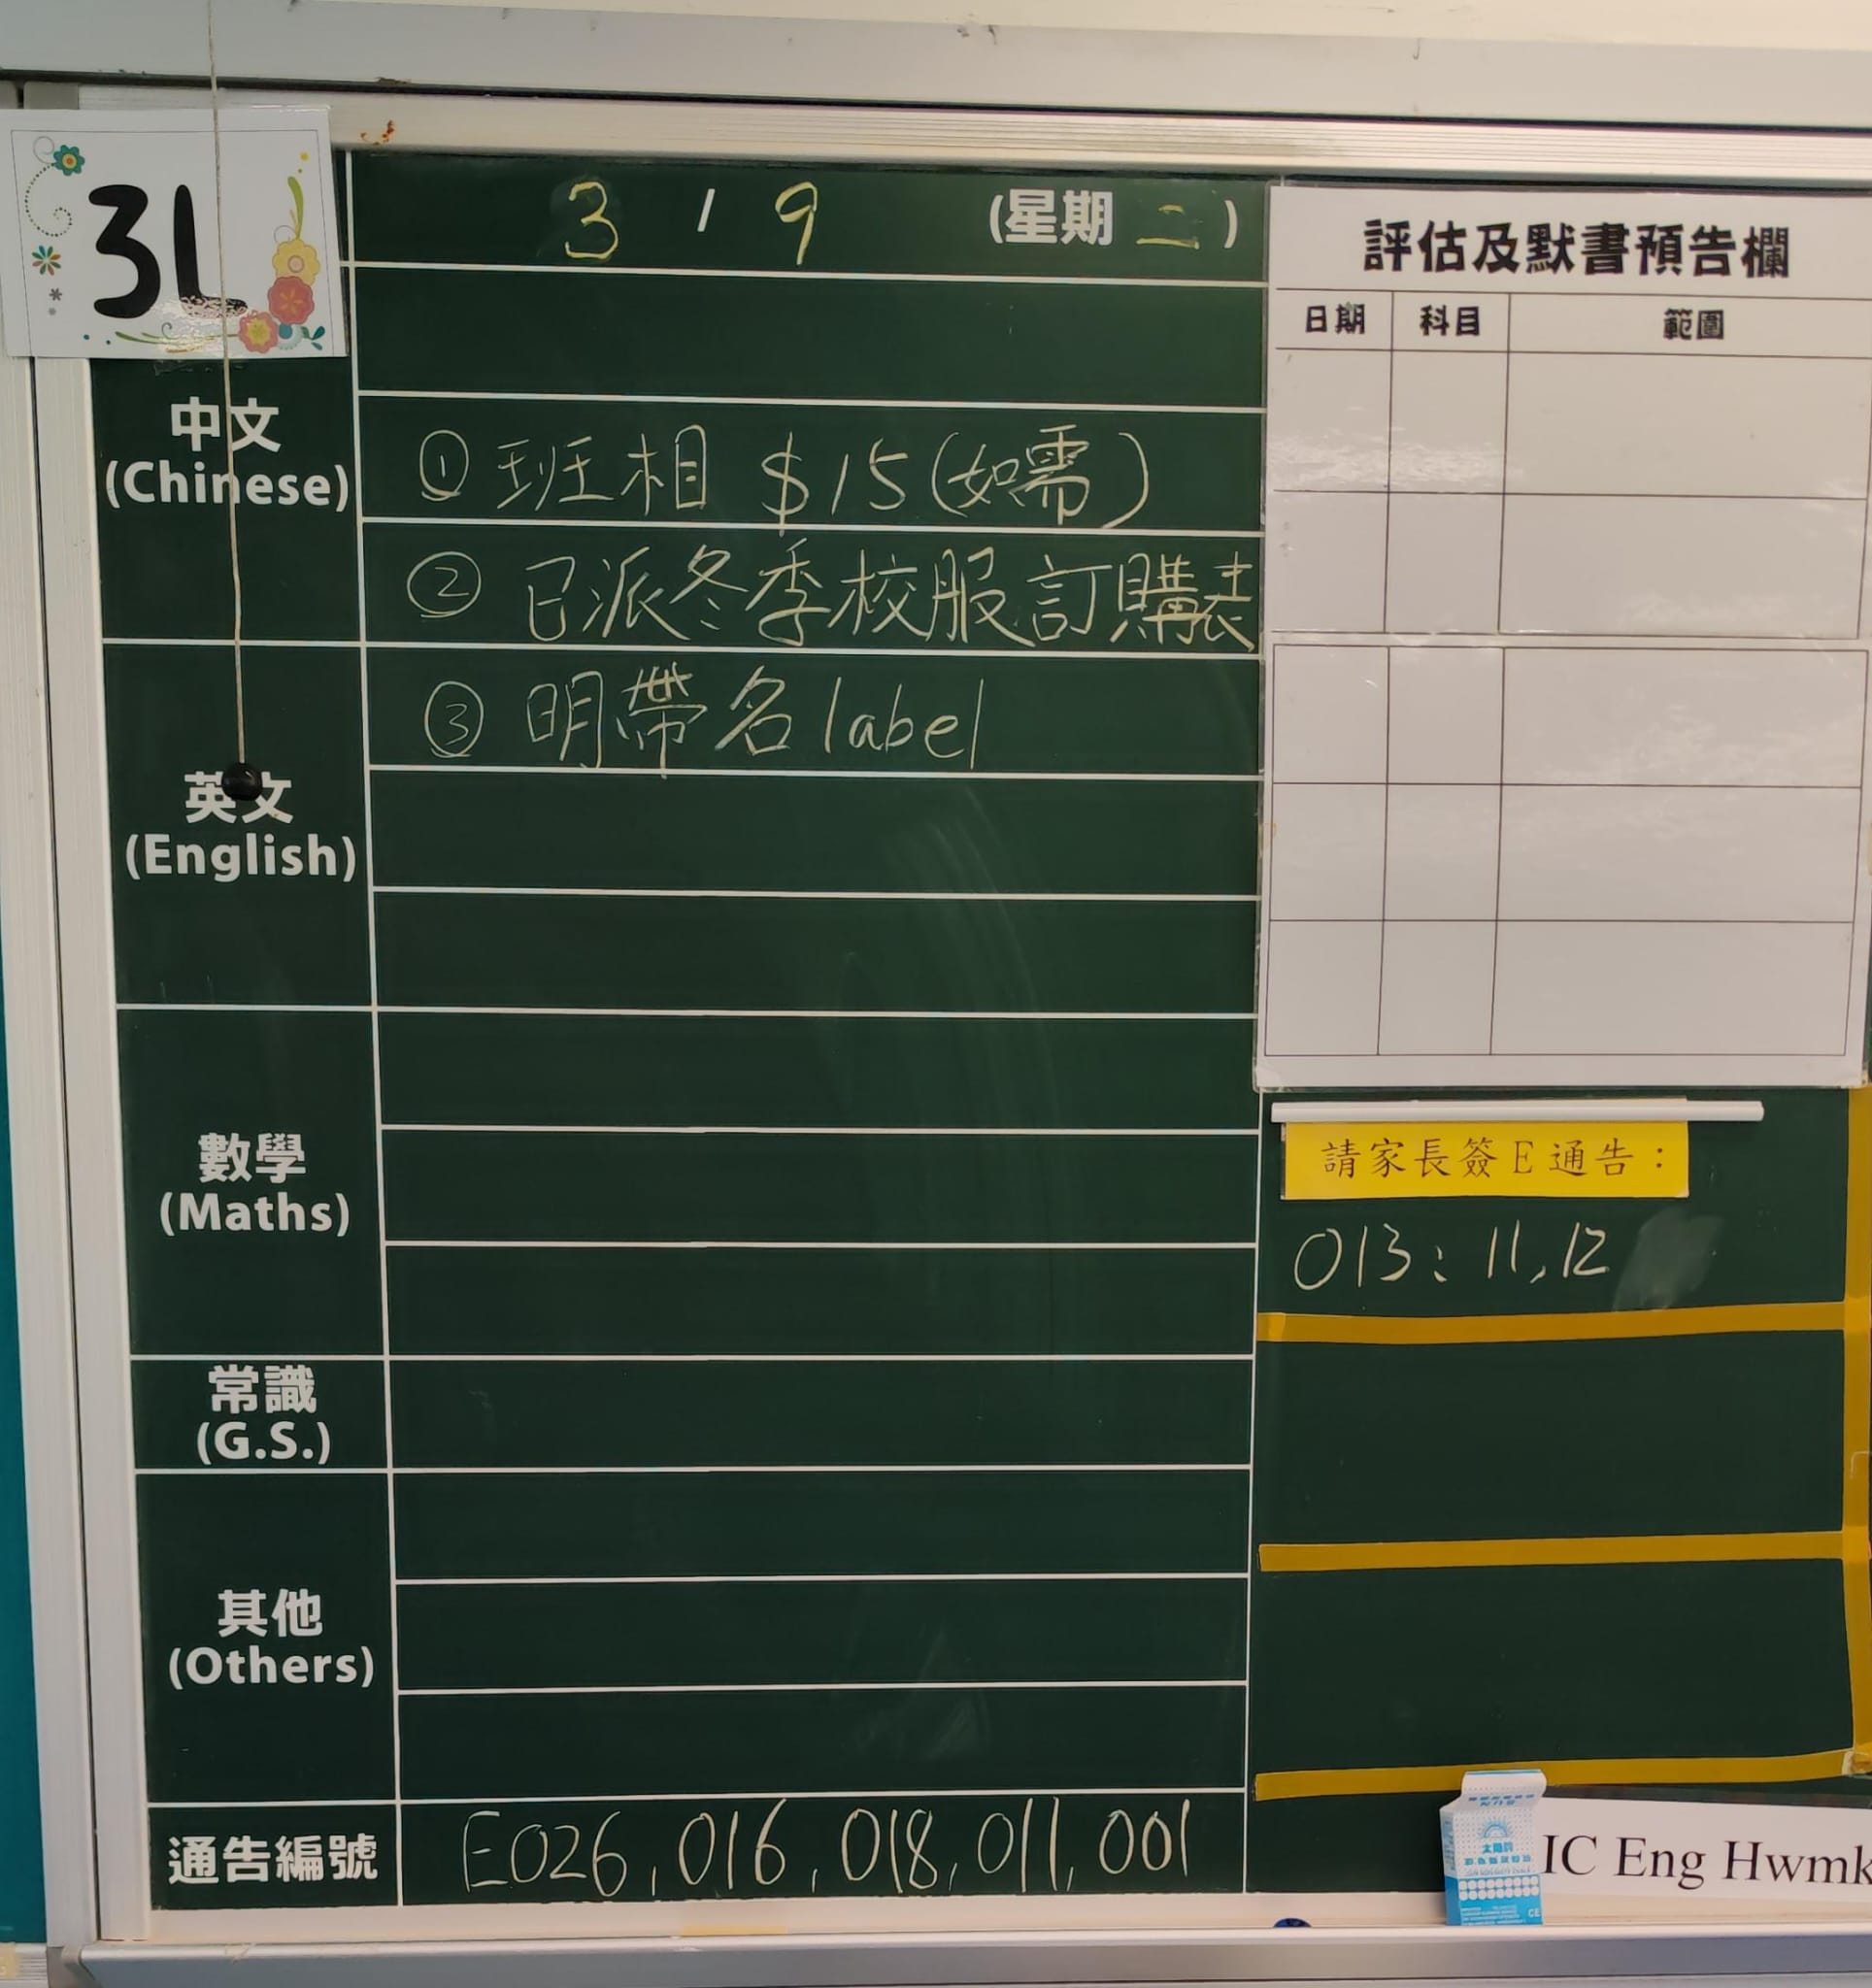 3L
3 / 9 (星期二)
中文
(Chinese)
① 班相 $15(如需)
② 已派冬季校服訂購表
英文
(English)
③ 明帶名label
數學
(Maths)
常識
(G.S.)
其他
(Others)
通告編號
E026, 016, 018, 011, 001
評估及默書預告欄
日期 科目 範圍
請家長簽E通告：
013: 11, 12
IC Eng Hwmk